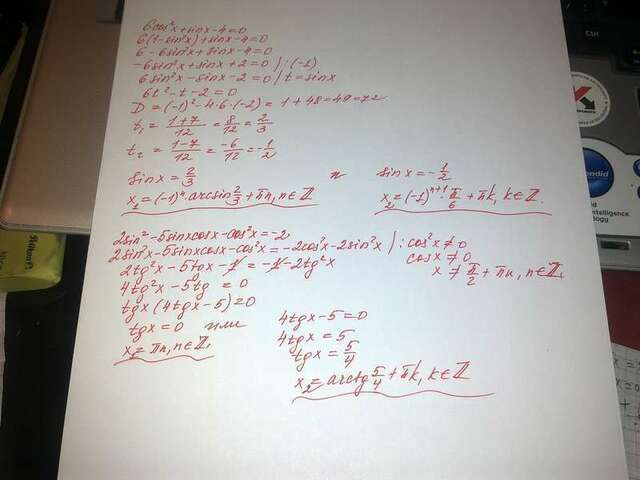 6cos²x+sinx-4=0
6(1-sin²x)+sinx-4=0
6-6sin²x+sinx-4=0
-6sin²x+sinx+2=0 /:(-1)
6sin²x-sinx-2=0 / t=sinx
6t²-t-2=0
D=(-1)²-4·6·(-2)=1+48=49=7²
t₁=(1+7)/12=8/12=2/3
t₂=(1-7)/12=-6/12=-1/2
sinx=2/3 и sinx=-1/2
x₁=(-1)ⁿ·arcsin2/3+πn, n∈ℤ x₂=(-1)ⁿ⁺¹·π/6+πk, k∈ℤ.
2sin²-5sinxcosx-cos²x=-2
2sin²x-5sinxcosx-cos²x=-2cos²x-2sin²x /:cos²x≠0
2tg²x-5tgx-1=-1-2tg²x cosx≠0
4tg²x-5tg=0 x≠π/2+πn, n∈ℤ
tgx(4tgx-5)=0
tgx=0 или 4tgx-5=0
x₁=πn, n∈ℤ 4tgx=5
tgx=5/4
x₂=arctg5/4+πk, k∈ℤ
Ctrl